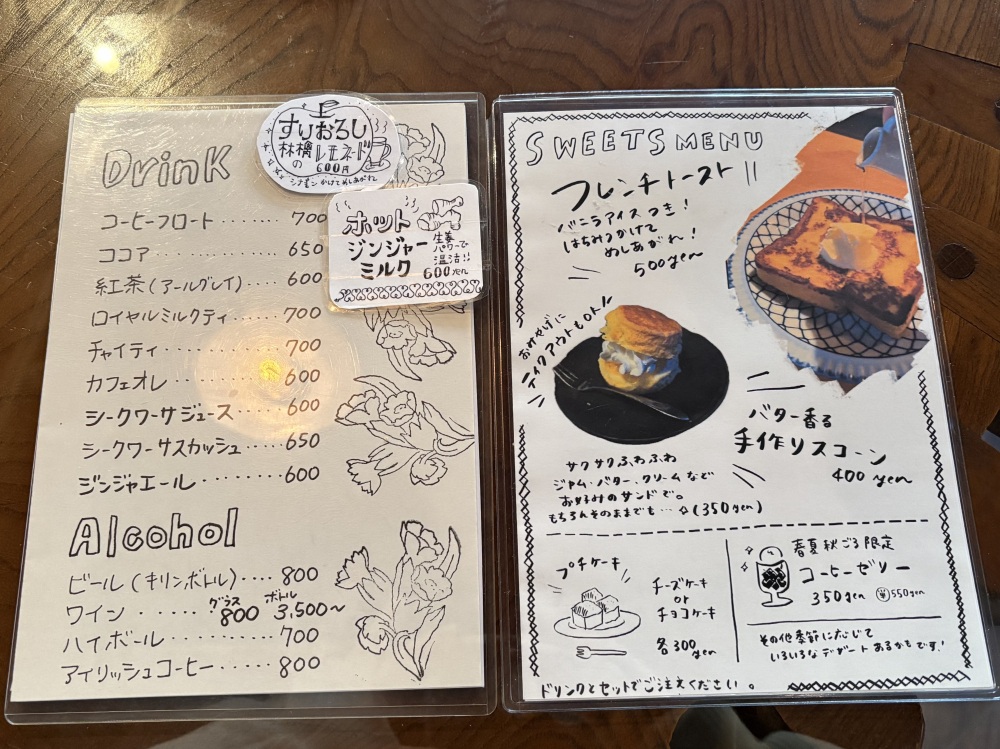 Drink
コーヒーフロート....... 700
ココア ............... 650
紅茶(アールグレイ)..... 600
ロイヤルミルクティ....... 700
チャイティ ............ 700
カフェオレ............ 600
シークワーサジュース..... 600
シークワーサスカッシュ..... 650
ジンジャエール......... 600
Alcohol
ビール(キリンボトル).... 800
ワイン ...... グラス 800 ボトル 3,500~
ハイボール........... 700
アイリッシュコーヒー...... 800
すりおろし
林檎のレモネード
600円
シナモンかけてめしあがれ
ホット
ジンジャー
ミルク
生姜
パワーで
温活!!
600yen
SWEETS MENU
フレンチトースト
バニラアイスつき!
はちみつかけて
めしあがれ!
500yen
おみやげに
テイクアウトもOK
バター香る
手作りスコーン
400 yen
サクサクふわふわ
ジャム・バター・クリームなどで
お好みのサンドで。
もちろんそのままでも… (350yen)
プチケーキ
チーズケーキ
or
チョコケーキ
各300
yen
春夏秋ごろ限定
コーヒーゼリー
350yen 550yen
その他季節に応じて
いろいろなデザートあるかもです!
ドリンクとセットでご注文ください。